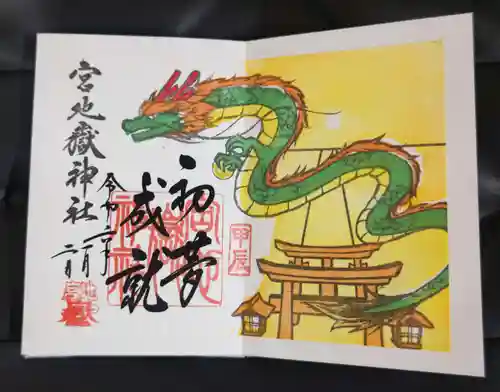 甲辰
初夢
成就
令和六年
一月
二日
宮地嶽神社